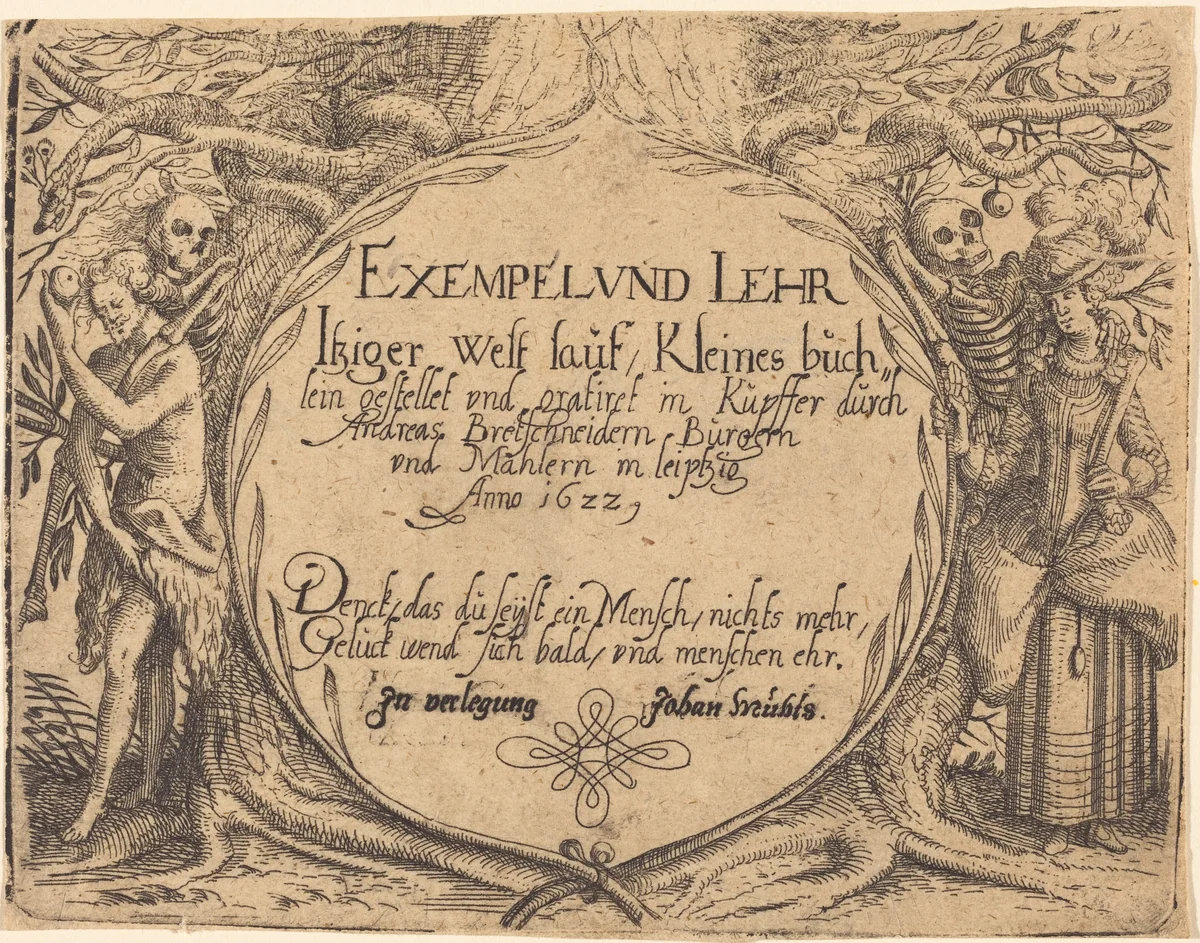 EXEMPEL VND LEHR
Itziger Welt lauf, Kleines buch„
lein gestellet vnd gratiret in Kupffer durch
Andreas Bretschneidern Burgern
vnd Mahlern in leiptzig
Anno 1622,
Denck, das du seÿst ein Mensch, nichts mehr,
Gelück wend sich bald, vnd menschen ehr.
In verlegung Johan